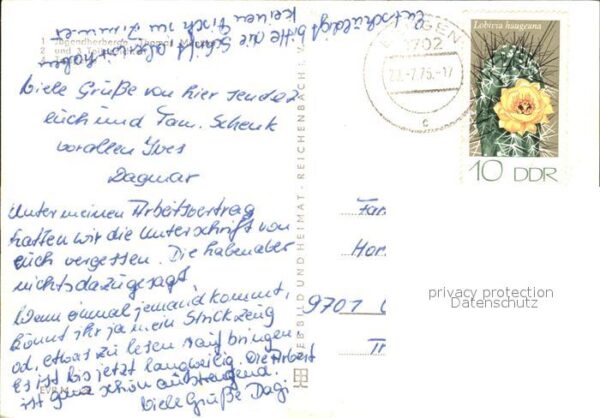 Entschuldigt bitte die Schrift aber ich habe
keinen Tisch im Zimmer
1 Jugendherberge "Thomas
2 und 3 Teilansicht
Viele Grüße von hier sendet
euch und Fam. Schenk
vorallem Yves
Dagmar
Unter meinen Arbeitsvertrag
hatten wir die Unterschrift von
euch vergessen. Die haben aber
nichts dazu gesagt.
Wenn einmal jemand kommt,
könnt ihr ja mein Strickzeug
od. etwas zu lesen rauf bringen
Es ist bis jetzt langweilig. Die Arbeit
ist ganz schön anstrengend.
Viele Grüße Dagi
VEB BILD UND HEIMAT · REICHENBACH I. V.
9702
-7.75.-17
c
Lobivia haageana
10 DDR
Fam
Hor
9701
privacy protection
Datenschutz